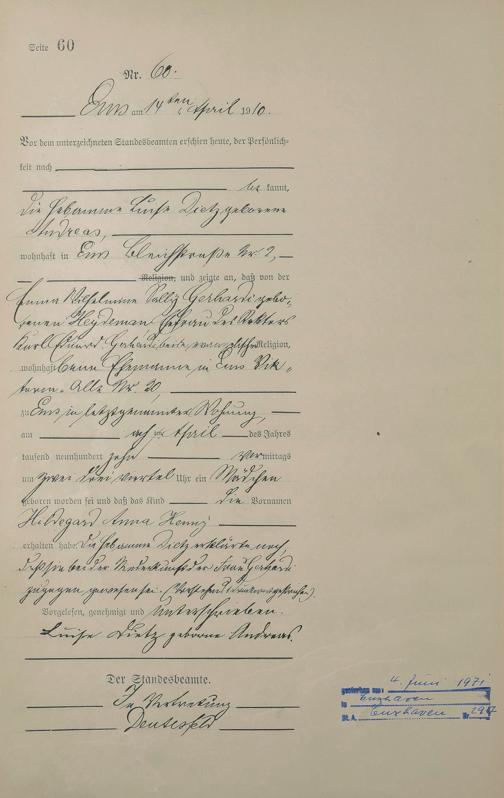 Seite 60
Nr. 60.
Ems am 14ten April 1910.
Vor dem unterzeichneten Standesbeamten erschien heute, der Persönlich-
keit nach
be kannt,
die Hebamme Luise Dietz geborene
Andreas,
wohnhaft in Ems Bleichstraße Nr. 2,
Religion, und zeigte an, daß von der
Emma Wilhelmine Gerhardi gebo-
renen Heydeman, Ehefrau des Rektors
Karl Eduard Gerhardi, beide evangelischer Religion,
wohnhaft beim Ehemanne in Ems Vik-
toria-Alle Nr. 20,
zu Ems in letztgenannter Wohnung,
am acht April des Jahres
tausend neunhundert zehn Vormittags
um zwei drei viertel Uhr ein Mädchen
geboren worden sei und daß das Kind die Vornamen
Hildegard Anna Henny
erhalten habe. Die Hebamme Dietz erklärte noch,
daß sie bei der Niederkunft der Frau Gerhardi
zugegen gewesen sei.
Vorgelesen, genehmigt und unterschrieben.
Luise Dietz geborne Andreas.
Der Standesbeamte.
In Vertretung
gestorben am: 4. Juni 1971
in Cuxhaven
St. A. Cuxhaven Nr.